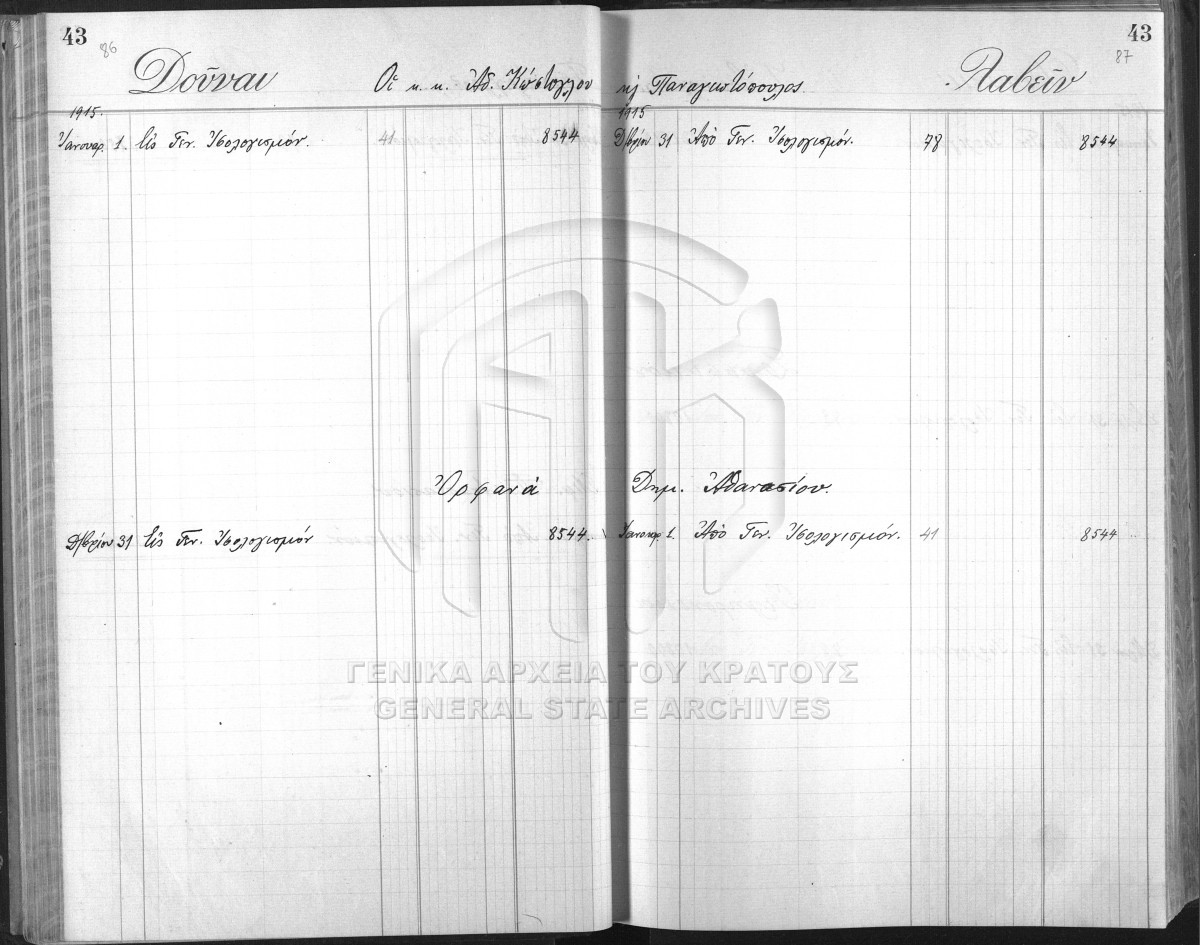 43 86
Δοῦναι Οἱ κ. κ. Ἀδ. Κώστογλου
1915.
Ἰανουαρ. 1 Εἰς Γεν. Ἰσολογισμόν. 41 8544
Δ/βρίου 31 Εἰς Γεν. Ἰσολογισμόν 8544.
Ὀρφανά
43 87
κ Παναγιωτόπουλος. Λαβεῖν
1915
Δ/βρίου 31 Ἀπὸ Γεν. Ἰσολογισμόν. 78 8544
Δημ. Ἀθανασίου.
Ἰανουαρ 1. Ἀπὸ Γεν. Ἰσολογισμόν. 41 8544
ΓΕΝΙΚΑ ΑΡΧΕΙΑ ΤΟΥ ΚΡΑΤΟΥΣ
GENERAL STATE ARCHIVES